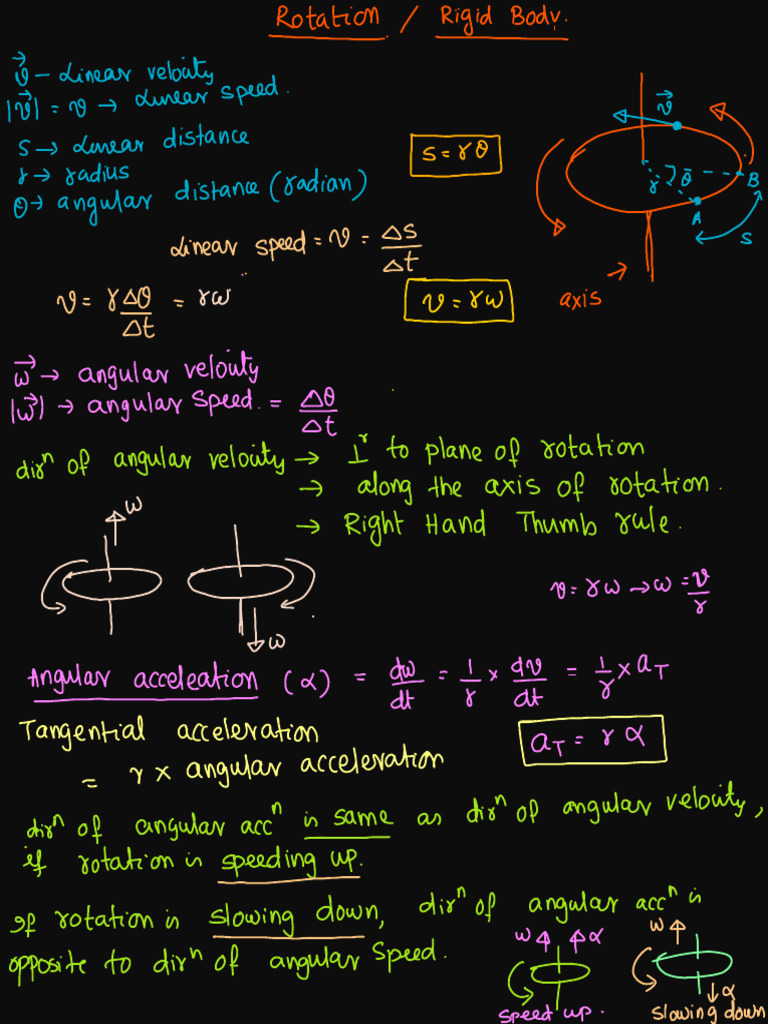 Rotation / Rigid Body.
v⃗ – Linear velocity
|v⃗| = v → Linear speed.
s → Linear distance
r → radius
θ → angular distance (radian)
s = rθ
v⃗
r
θ
B
A
s
axis
Linear speed = v = Δs/Δt
v = rΔθ/Δt = rω
v = rω
ω⃗ → angular velocity
|ω⃗| → angular speed. = Δθ/Δt
dirⁿ of angular velocity → ⊥ʳ to plane of rotation
→ along the axis of rotation.
→ Right Hand Thumb rule.
ω
ω
v = rω → ω = v/r
Angular acceleation (α) = dω/dt = 1/r × dv/dt = 1/r × a_T
Tangential acceleration
= r × angular acceleration
a_T = r α
dirⁿ of angular accⁿ is same as dirⁿ of angular velocity,
if rotation is speeding up.
If rotation is slowing down, dirⁿ of angular accⁿ is
opposite to dirⁿ of angular speed.
ω α
speed up.
ω
α
slowing down